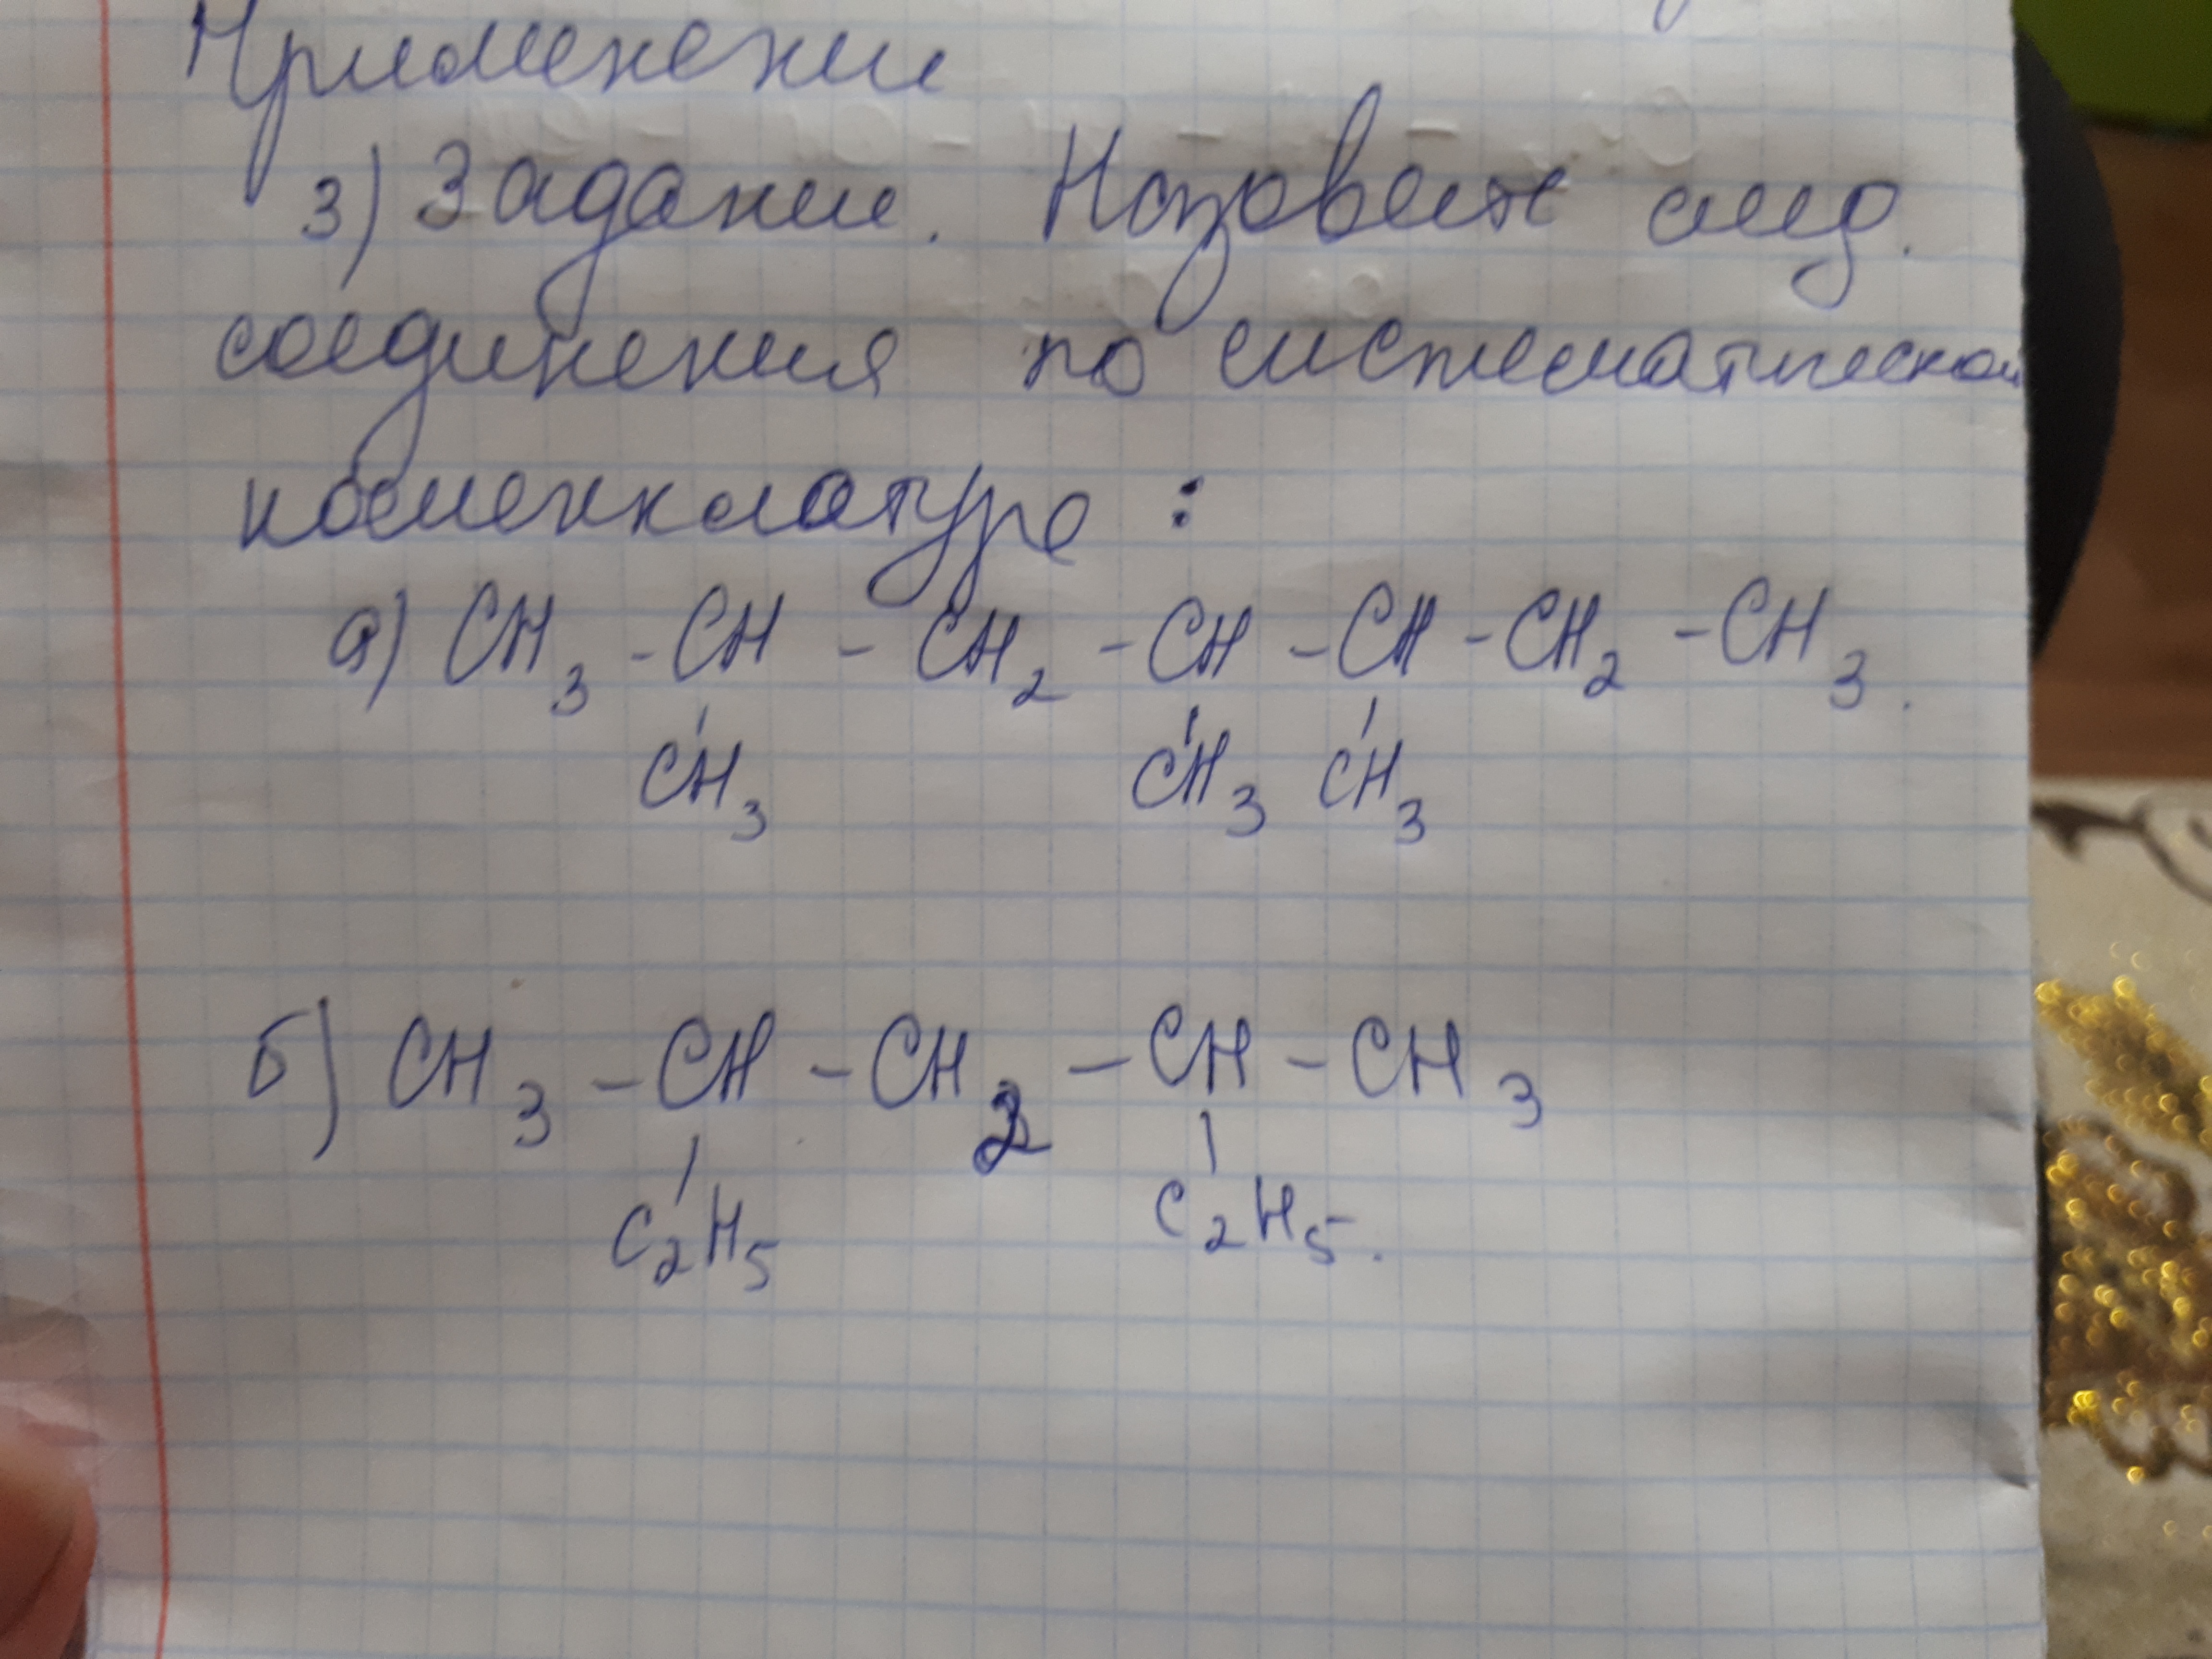 Применение
3) Задание. Назовите след.
соединения по систематической
номенклатуре :
а) CH3 - CH - CH2 - CH - CH - CH2 - CH3.
CH3 CH3 CH3
б) CH3 - CH - CH2 - CH - CH3
C2H5 C2H5.